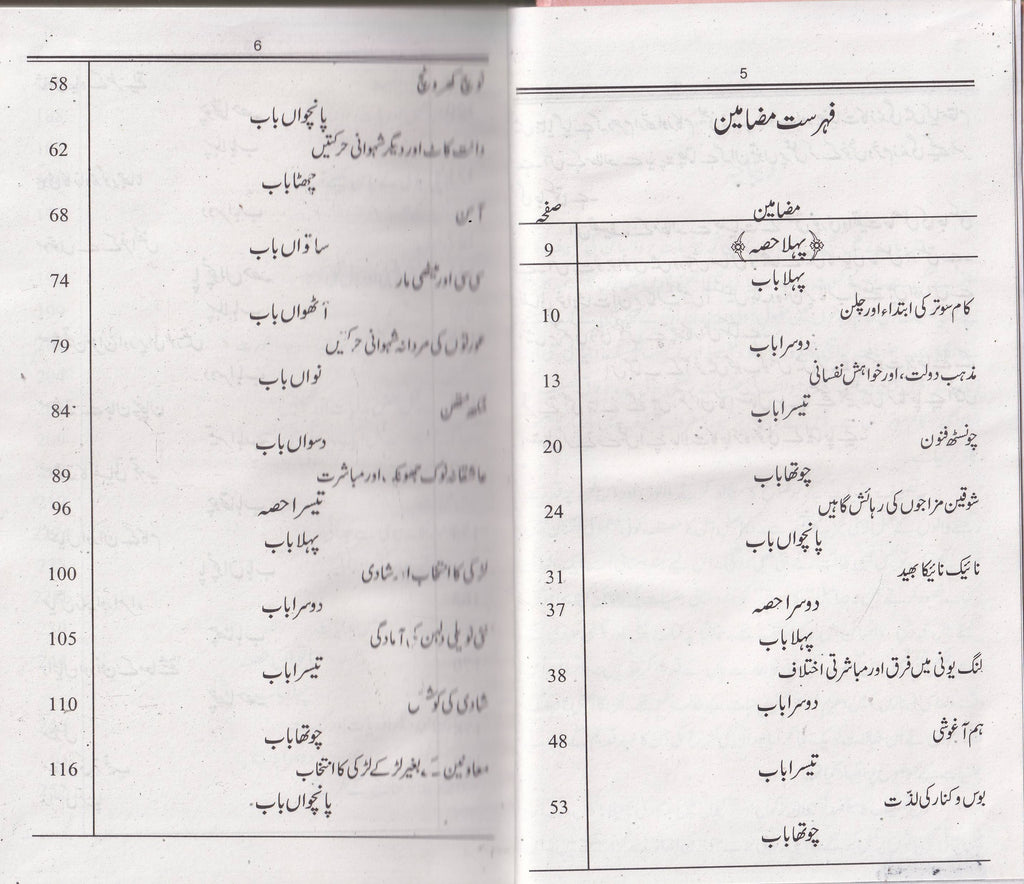 5
فہرست مضامین
مضامین صفحہ
پہلا حصہ 9
پہلا باب
کام سوتر کی ابتداء اور چلن 10
دوسرا باب
مذہب دولت، اور خواہش نفسانی 13
تیسرا باب
چونسٹھ فنون 20
چوتھا باب
شوقین مزاجوں کی رہائش گاہیں 24
پانچواں باب
نائیک نائیکا بھید 31
دوسرا حصہ 37
پہلا باب
لنگ یونی میں فرق اور مباشرتی اختلاف 38
دوسرا باب
ہم آغوشی 48
تیسرا باب
بوس و کنار کی لذت 53
چوتھا باب
6
نوچ کھروچ 58
پانچواں باب
دانت کاٹ اور دیگر شہوانی حرکتیں 62
چھٹا باب
آسن 68
ساتواں باب
سی سی اور میٹھی مار 74
آٹھواں باب
عورتوں کی مردانہ شہوانی حرکتیں 79
نواں باب
84
دسواں باب
عاشقانہ نوک جھونک، اور مباشرت 89
تیسرا حصہ 96
پہلا باب
لڑکی کا انتخاب اور شادی 100
دوسرا باب
نئی نویلی دلہن کی آمادگی 105
تیسرا باب
شادی کی کوشش 110
چوتھا باب
معاونین کے بغیر لڑکے لڑکی کا انتخاب 116
پانچواں باب